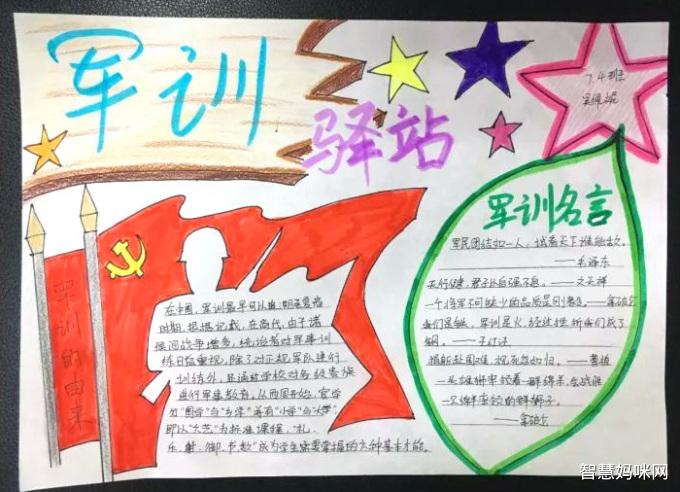 军训
驿站
7.4班
军训的由来
在中国,军训最早可以追溯至夏商
时期,根据记载,在商代,由于诸
侯间战争增多,统治者对军事训
练日益重视,除了对正规军队进行
训练外,还通过学校对各级贵族
进行军事教育,从西周开始,官学
分"国学"与"乡学"兼有"小学"与"大学"
即以"六艺"为标准课程,"礼、
乐、射、御、书、数"成为学生需要掌握的六种基本才能。
军训名言
军民团结如一人,试看天下谁能敌。
——毛泽东
天行健,君子以自强不息。——文天祥
一个将军不可缺少的品质是刚勇。——拿破仑
我们是铁,军训是火,经过挫折我们成了
钢。
捐躯赴国难,视死忽如归。——曹植
一头雄狮率领着一群绵羊,会战胜
一只绵羊率领的群狮子。
——拿破仑
智慧妈咪网